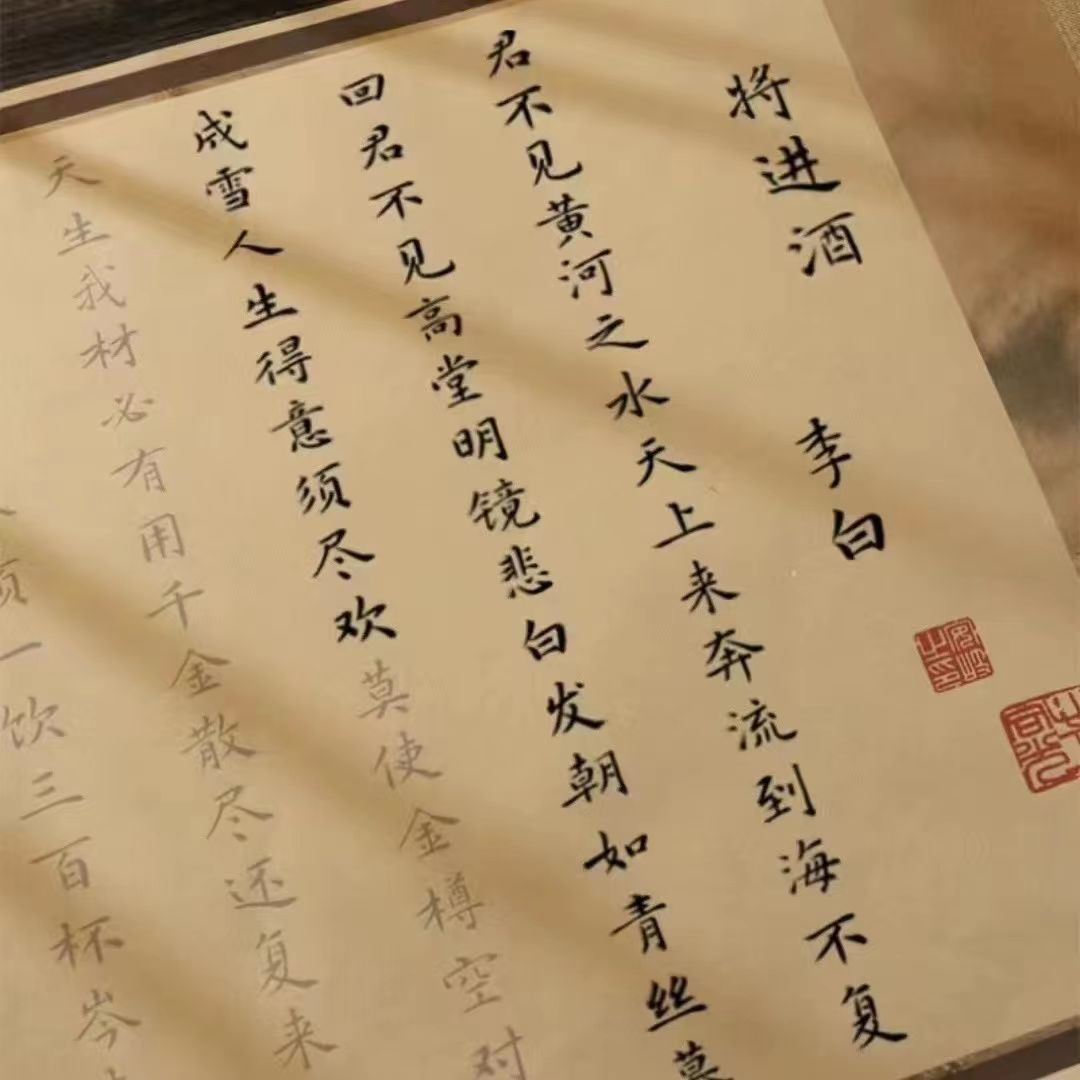 将进酒 李白
君不见黄河之水天上来奔流到海不复
回君不见高堂明镜悲白发朝如青丝
成雪人生得意须尽欢莫使金樽空对
天生我材必有用千金散尽还复来
一饮三百杯岑